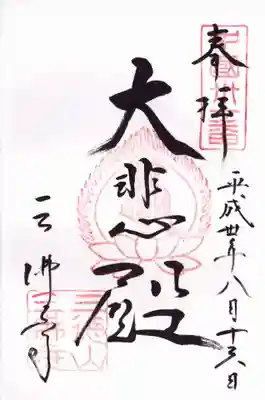 奉拝
平成卅年八月十 日
大悲殿
三佛寺
三徳山